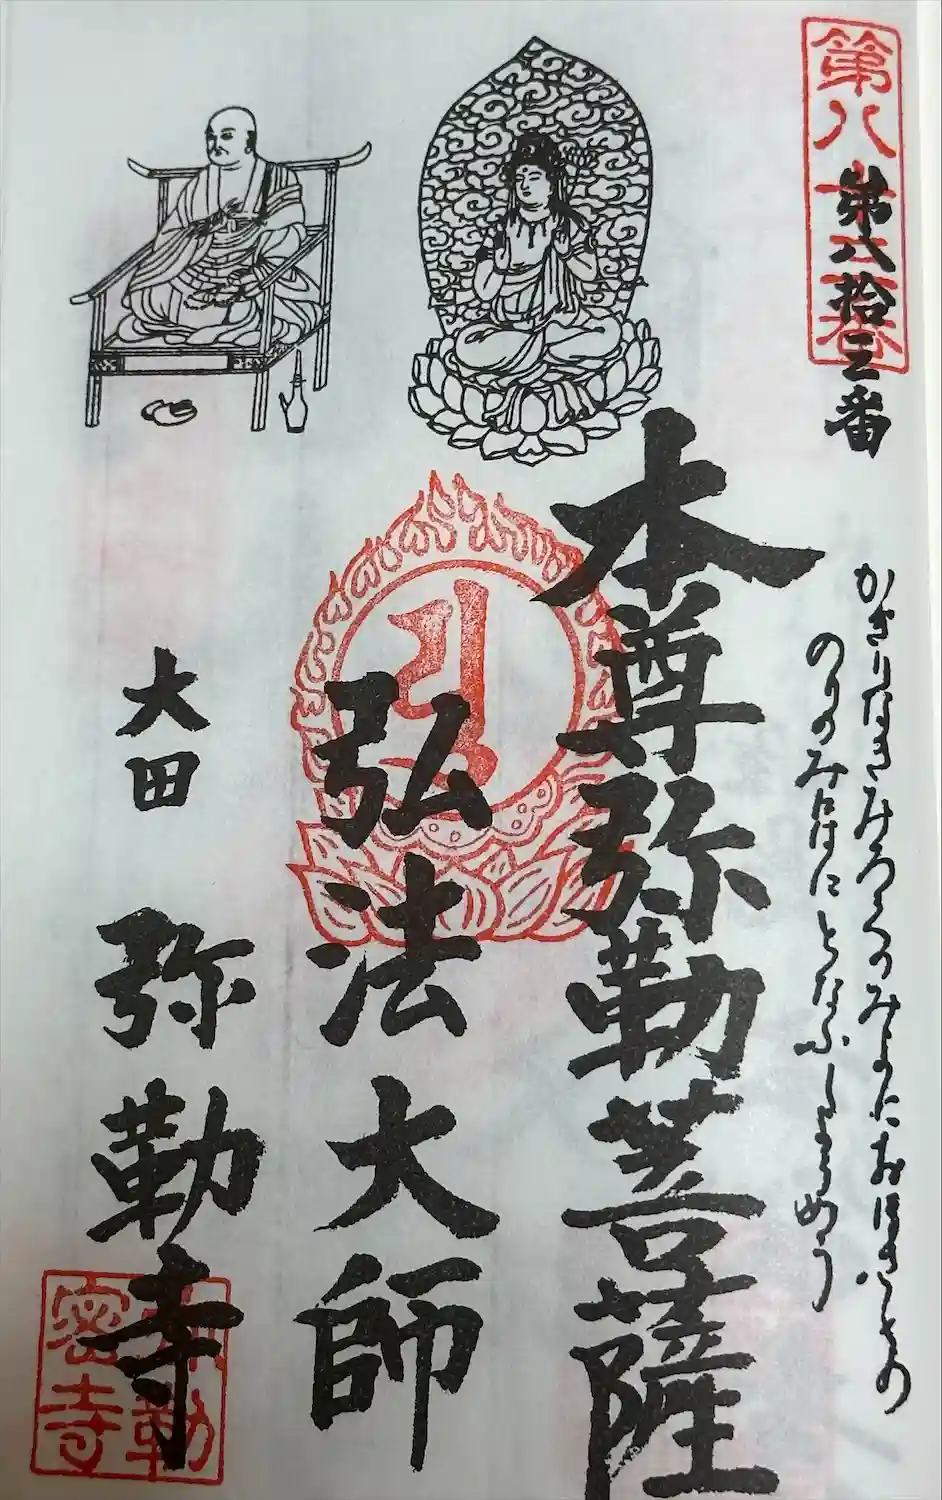 第八十三番
第八拾三番
かきりなきみろくのみよにおほさとの
のりのみにはにとなふしようめう
本尊弥勒菩薩
弘法大師
大田 弥勒寺
弥勒
密寺